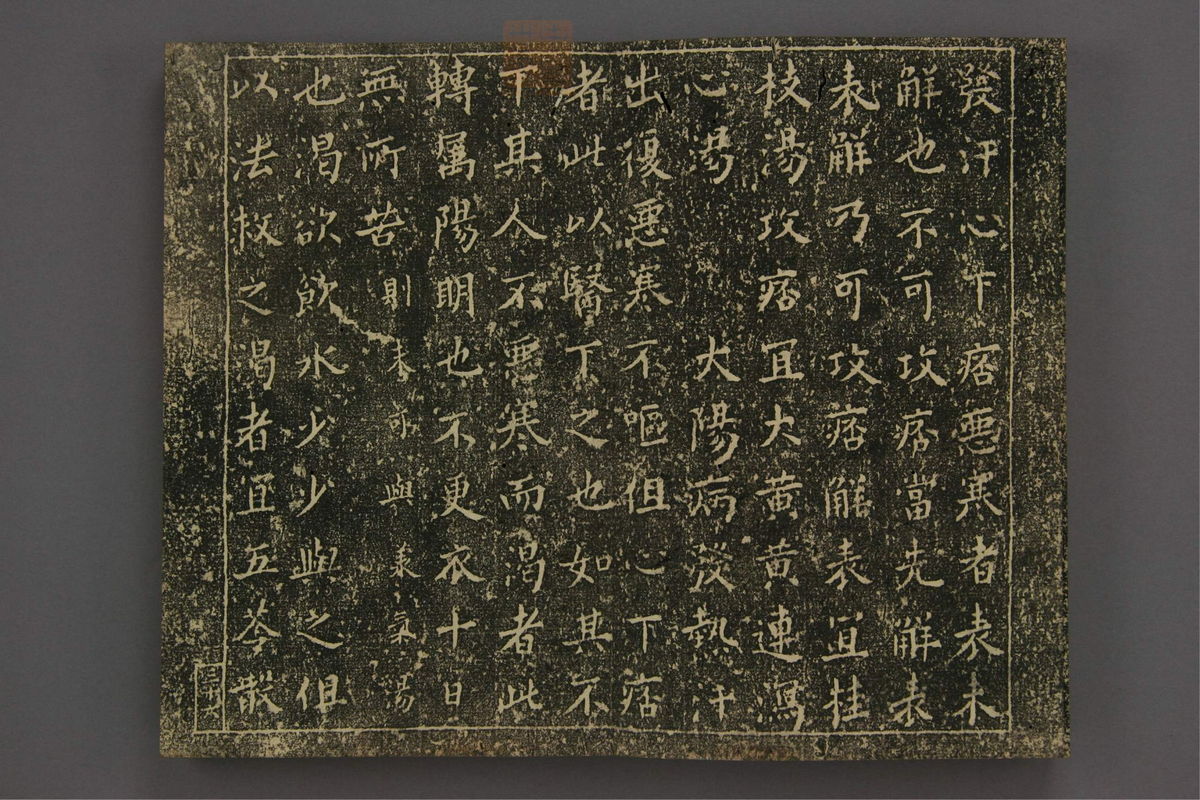 發汗心下痞惡寒者表未
解也不可攻痞當先解表
表解乃可攻痞解表宜桂
枝湯攻痞宜大黃黃連瀉
心湯　太陽病發熱汗
出復惡寒不嘔但心下痞
者此以醫下之也如其不
下其人不惡寒而渴者此
轉屬陽明也不更衣十日
無所苦則未可與承氣湯
也渴欲飲水少少與之但
以法救之渴者宜五苓散